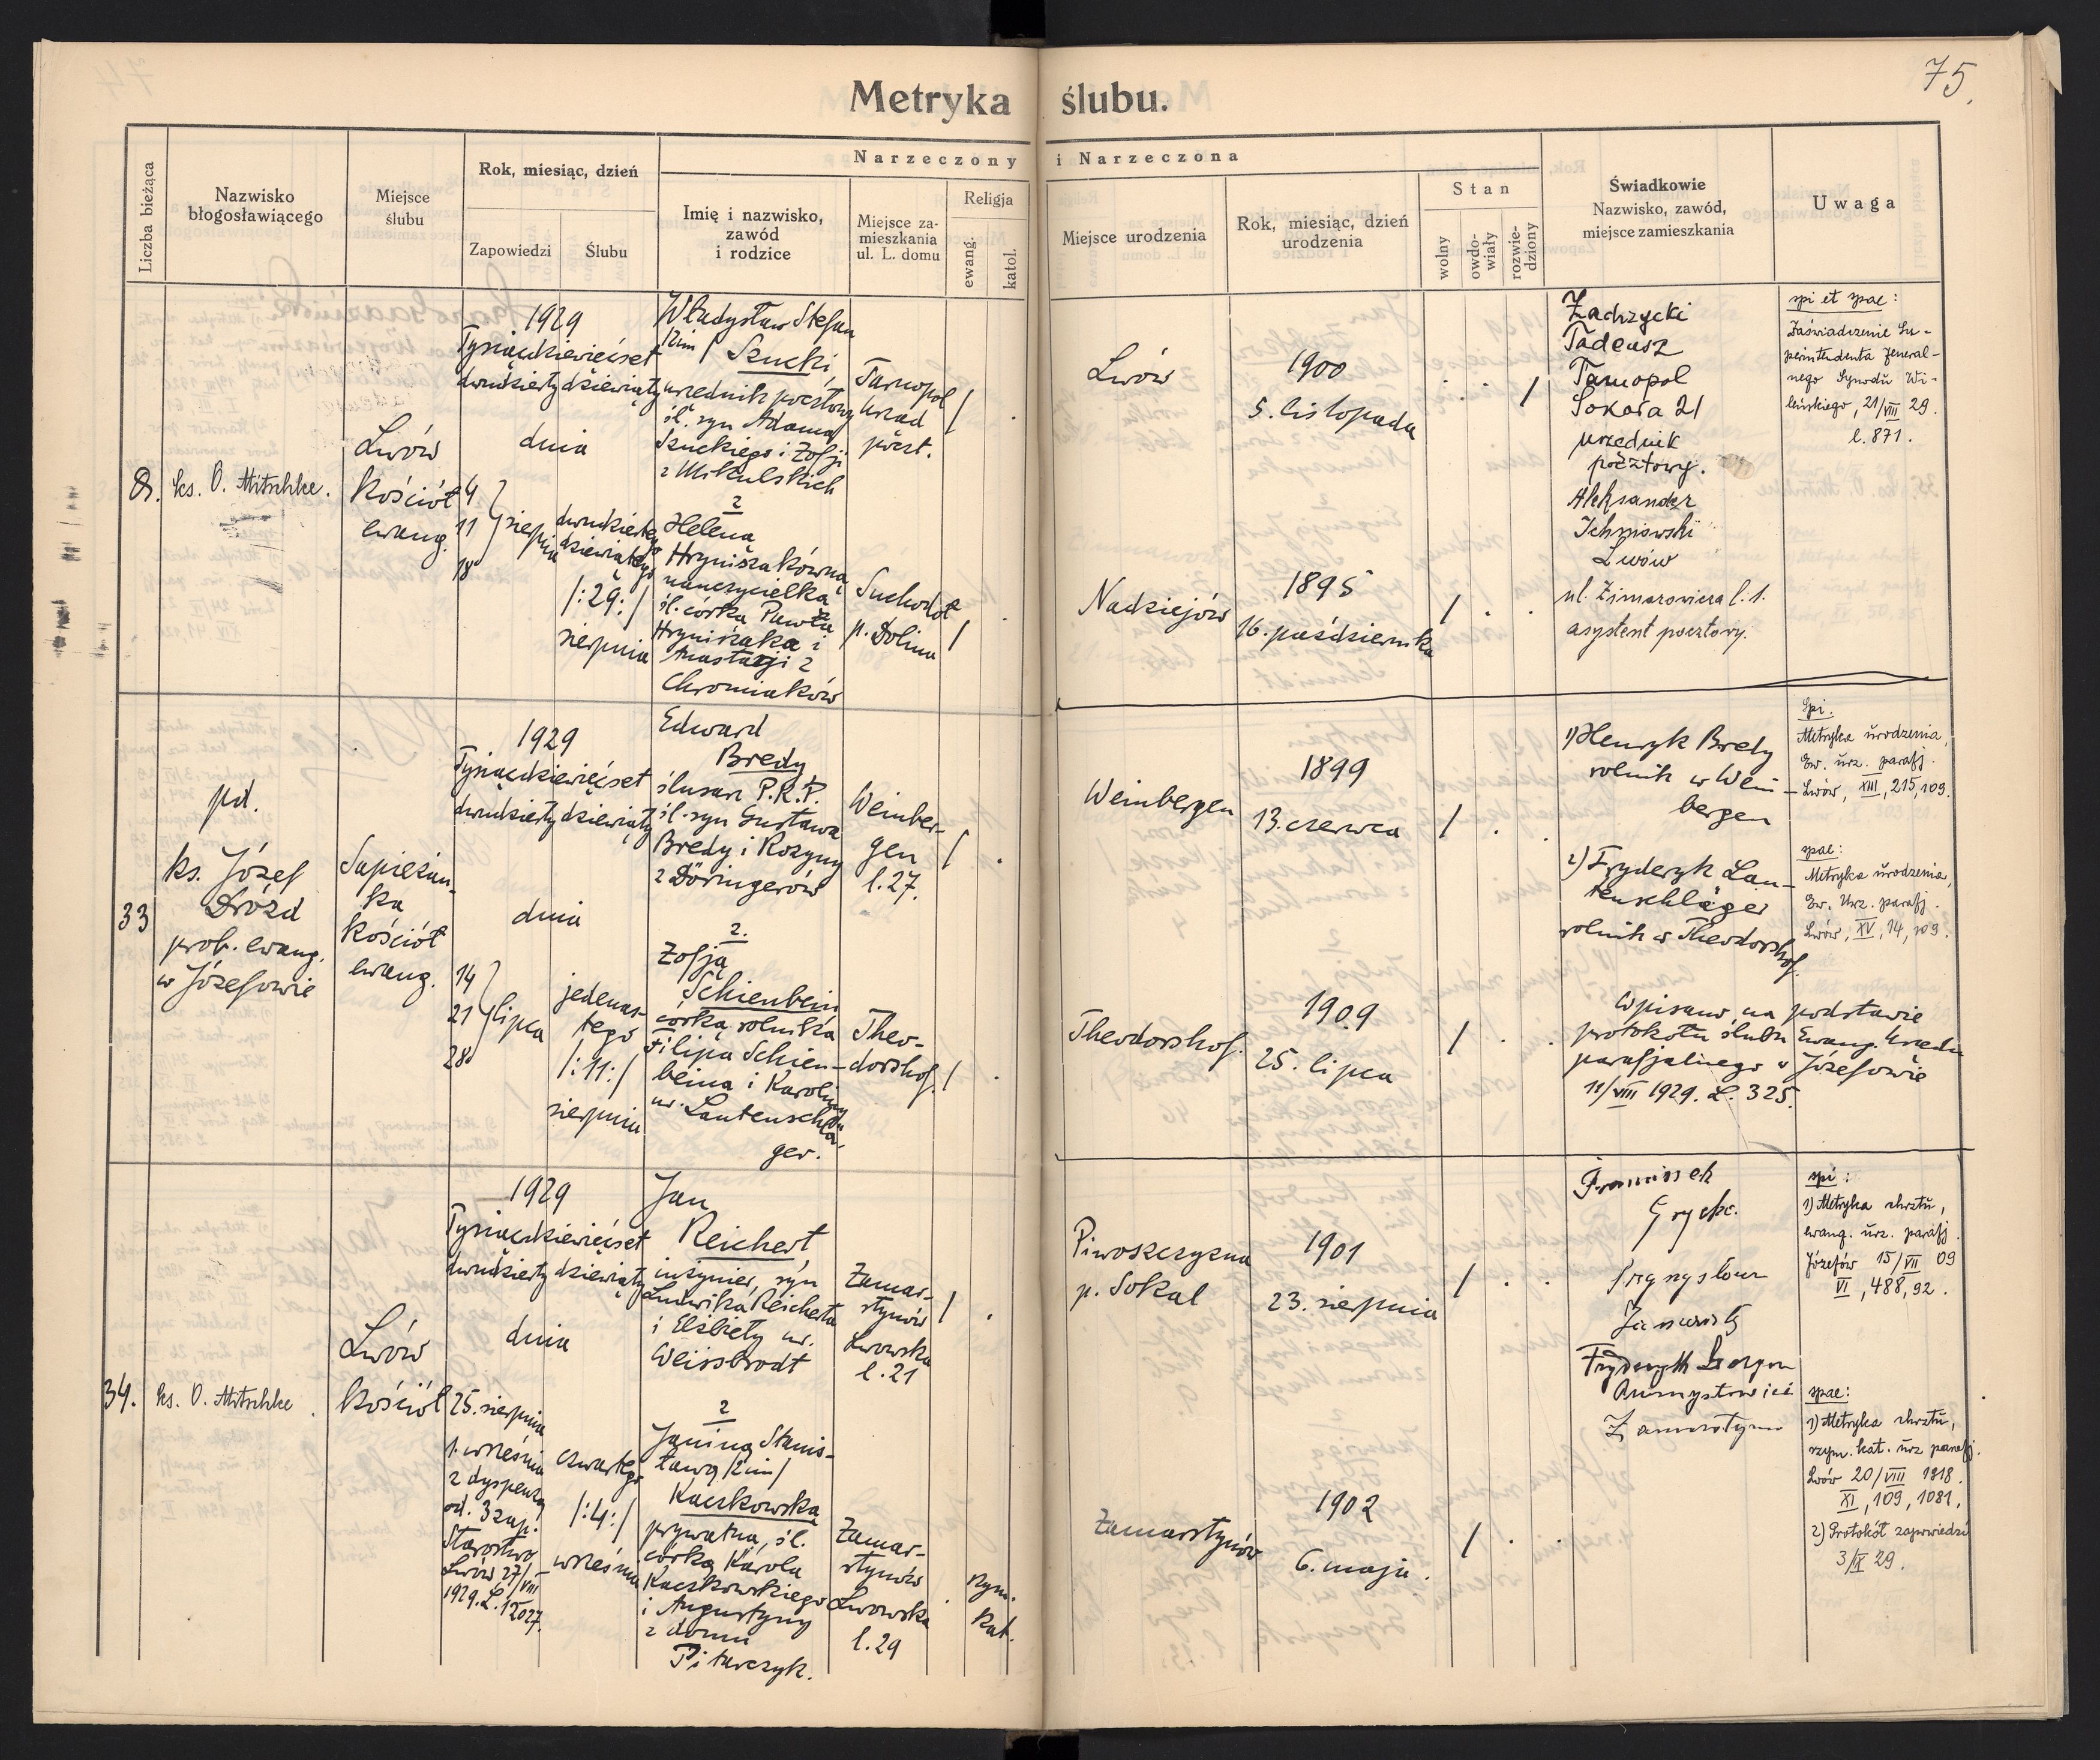 75.
Metryka ślubu.
Liczba bieżąca
Nazwisko
błogosławiącego
Miejsce
ślubu
Rok, miesiąc, dzień
Zapowiedzi
Ślubu
Narzeczony i Narzeczona
Imię i nazwisko,
zawód
i rodzice
Miejsce za-
mieszkania
ul. L. domu
Religja
ewang.
katol.
Miejsce urodzenia
Rok, miesiąc, dzień
urodzenia
Stan
wolny
owdo-
wiały
rozwie-
dziony
Świadkowie
Nazwisko, zawód,
miejsce zamieszkania
Uwaga
8.
ks. O. Mitschke.
Lwów
Kościół
ewang.
1929
Tysiącdziewięćset
dwudziesty dziewiąty
dnia
4
11
18
sierpnia
dwudziestego
dziewiątego
/:29:/
sierpnia
Władysław Stefan
/2 im/ Szucki,
urzednik pocztowy
śl. syn Adama
Szuckiego i Zofji
z Mikulskich
2
Helena
Hryniszakówna
nauczycielka
śl. córka Pawła
Hryniszaka i
Anastazji z
Chromiaków
Tarnopol
Urząd
poczt.
Suchodół
p. Dolina
Lwów
1900
5. listopada
Nadziejów
1895
16. październik
Zachzycki
Tadeusz
Tarnopol
Sokoła 21
urzednik
pocztowy.
Aleksander
Ichniowski
Lwów
ul. Zimorowicza l. 1.
asystent pocztowy.
spi et spae:
Zaświadczenie Su-
perintendenta Jeneral-
nego Synodu Wi-
leńskiego, 21/VIII 29.
l. 871.
33
pd.
ks. Józef
Drózd
prob. ewang.
w Józefowie
Sapieżan-
ka
Kościół
ewang.
1929
Tysiącdziewięćset
dwudziesty dziewiąty
dnia
14
21
28
lipca
jedenas-
tego
/:11:/
sierpnia
Edward
Bredy
ślusarz P.K.P.
śl. syn Gustawa
Bredy i Rozyny
z Döringerów
2.
Zofja
Schienbein
córka rolnika
Filipa Schien-
beina i Karoliny
ur. Lautenschlä-
ger.
Weinber-
gen
l. 27.
Theo-
dorshof.
Weinbergen
1899
13. czerwca
Theodorshof.
1909
25. lipca
1) Henryk Bredy
rolnik w Wein-
bergen
2) Fryderyk Lau-
tenschläger
rolnik w Theodorshof.
Wpisano na podstawie
protokołu ślubu Ewang. Urzędu
parafjalnego w Józefowie
11/VIII 1929. L. 325.
Spi.
Metryka urodzenia,
Ew. urz. parafj.
Lwów, XIII, 215, 109.
spae:
Metryka urodzenia,
Ew. Urz. parafj.
Lwów, XV, 14, 109.
34.
ks. O. Mitschke.
Lwów
Kościół
1929
Tysiącdziewięćset
dwudziesty dziewiąty
dnia
25. sierpnia
1. września
z dyspensą
od. 3 zap.
Starostwo
Lwów 27/VIII
1929. L. 12027.
czwartego
/:4:/
września
Jan
Reichert
inżynier, syn
Ludwika Reicherta
i Elżbiety ur.
Weissbrodt
2
Janina Stanis-
ława /2 im/
Kaczkowska
prywatna, śl.
córka Karola
Kaczkowskiego
i Augustyny
z domu
Pitarczyk.
Zamar-
stynów
Lwowska
l. 21
Zamar-
stynów
Lwowska
l. 29
rzym.
kat.
Piwoszczyzna
p. Sokal
1901
23. sierpnia
Zamarstynów
1902
6. maja.
Franciszek
Fryderyk
spi:
1) Metryka chrztu,
ewang. urz. parafj.
Józefów 15/VII 09
VI, 488, 92.
spae:
1) Metryka chrztu,
rzym. kat. urz parafj.
Lwów 20/VIII 1818.
XI, 109, 1081,
2) Protokół zapowiedzi
3/IX 29.